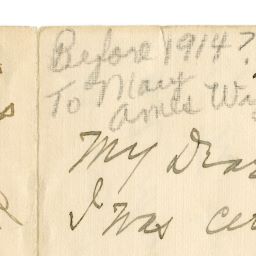 Before 1914?
To Mary
Ames
My Dear
I was